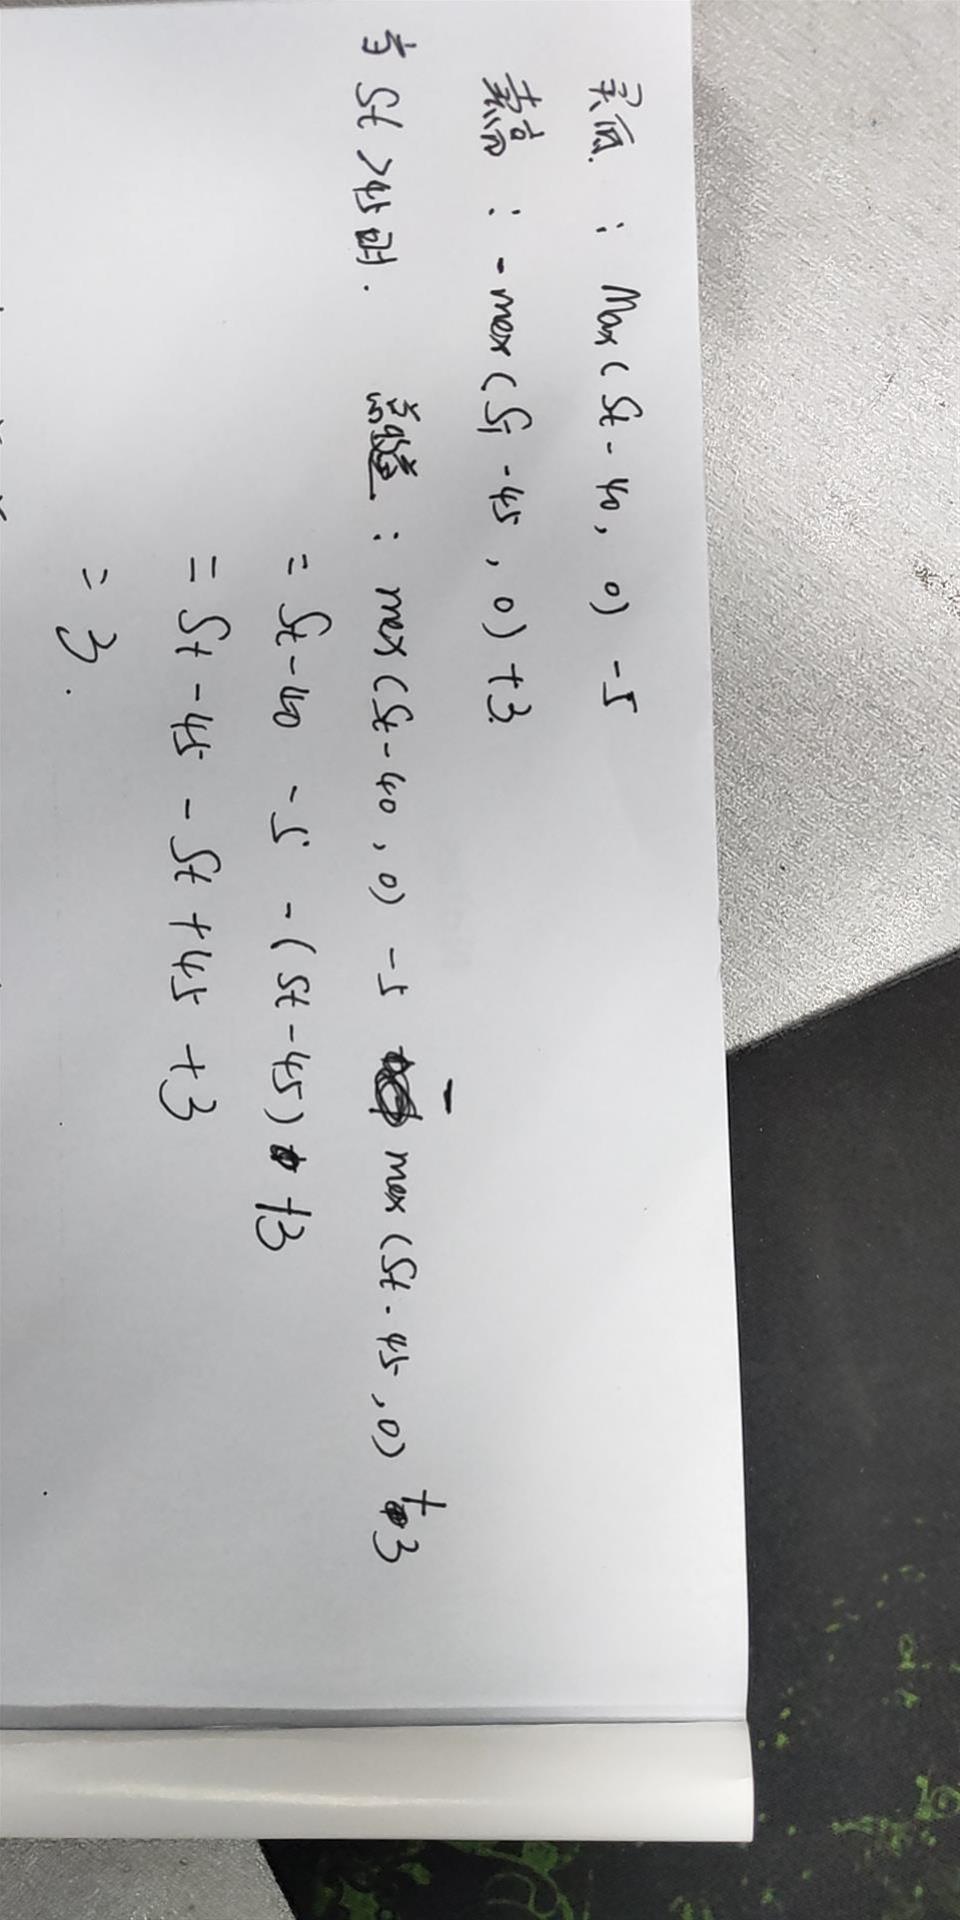 买两 : Max(St - 40, 0) - 5
卖高 : - max(St - 45, 0) + 3
当 St > 45 时. : max(St - 40, 0) - 5 - max(St - 45, 0) + 3
= St - 40 - 5 - (St - 45) + 3
= St - 45 - St + 45 + 3
= 3.